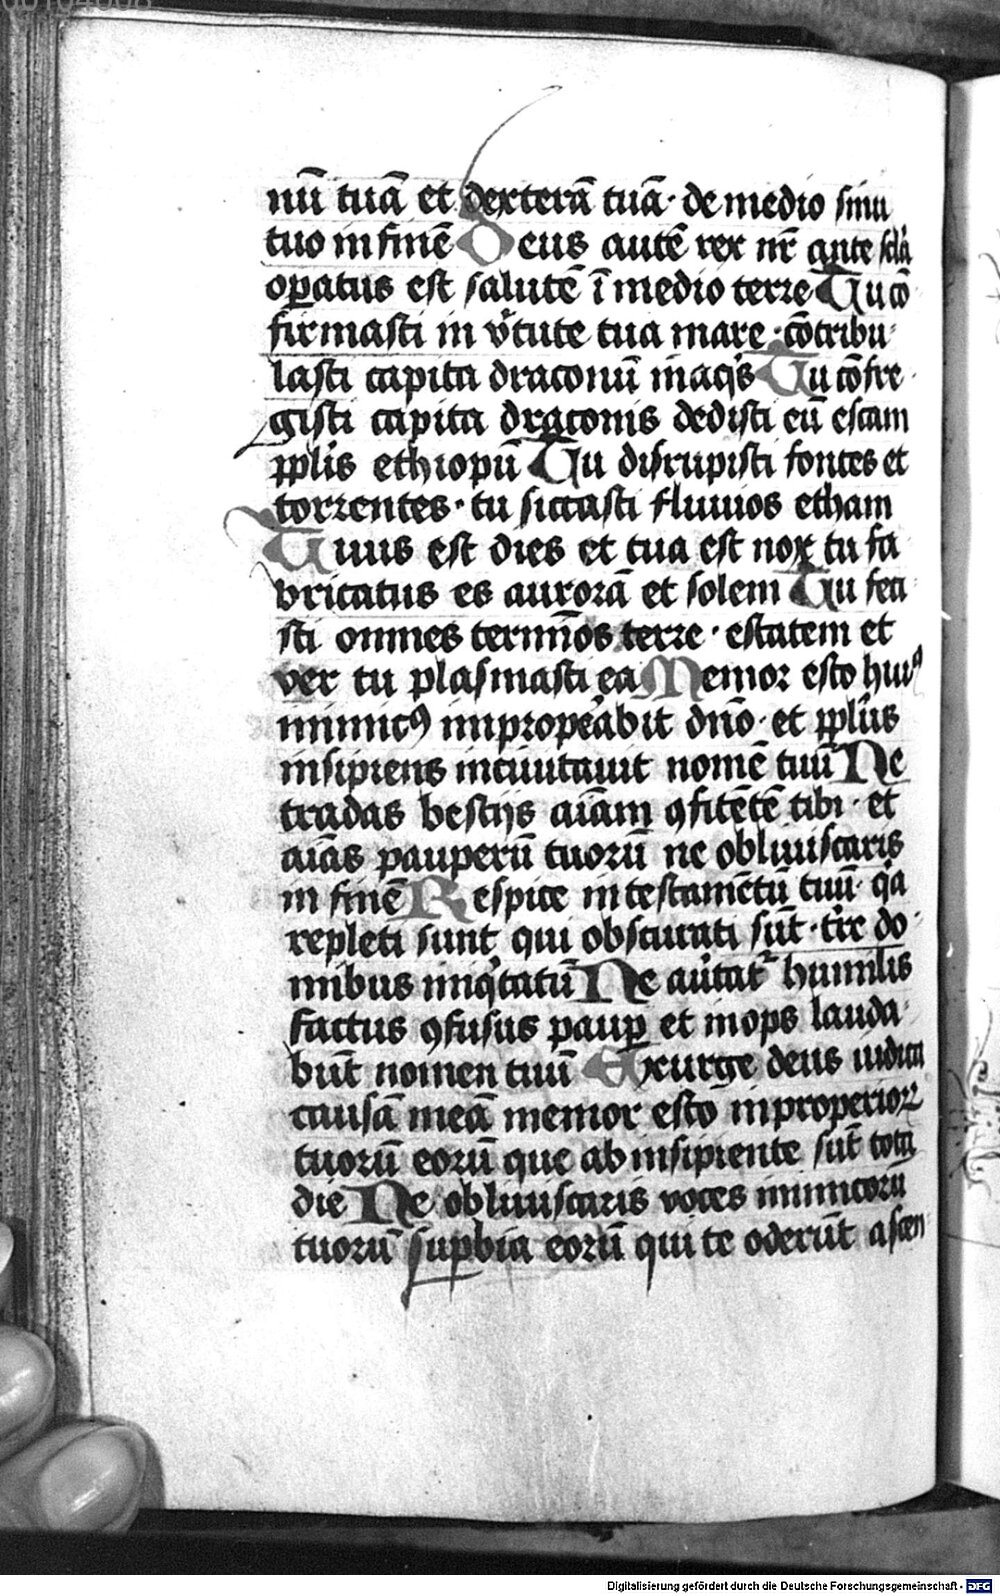 nū tuā et dexterā tuā · de medio sinu
tuo in finē Deus autē rex nr̄ ante sc̄la
oꝑatus est salutē ī medio terre Tu cō
firmasti in v̓tute tua mare · cōtribu
lasti capita draconū in aqͥs Tu cōfre
gisti capita draconis dedisti eū escam
ꝑplīs ethiopū Tu disrupisti fontes et
torrentes · tu siccasti fluuios etham
Tuus est dies et tua est nox tu fa
bricatus es aurorā et solem Tu feci
sti omnes termīos terre · estatem et
ver tu plasmasti ea Memor esto huiꝰ
inimicꝰ improꝑabit dn̄o · et pplūs
insipiens incitauit nomē tuū Ne
tradas bestijs aīam ꝯfitētē tibi · et
aīas pauperū tuorū ne obliuiscaris
in finē Respice in testamētū tuū · qͥa
repleti sunt qui obscurati sūt · tr̄e do
mibus iniqͥtatū Ne au̓tatᷣ humilis
factus ꝯfusus pauꝑ et inops lauda
būt nomen tuū Exurge deus iudica
causā meā memor esto inproperioꝝ
tuorū eorū que ab insipiente sūt tota
die Ne obliuiscaris voces inimicorū
tuorū suꝑbia eorū qui te oderūt ascen
Digitalisierung gefördert durch die Deutsche Forschungsgemeinschaft - DFG